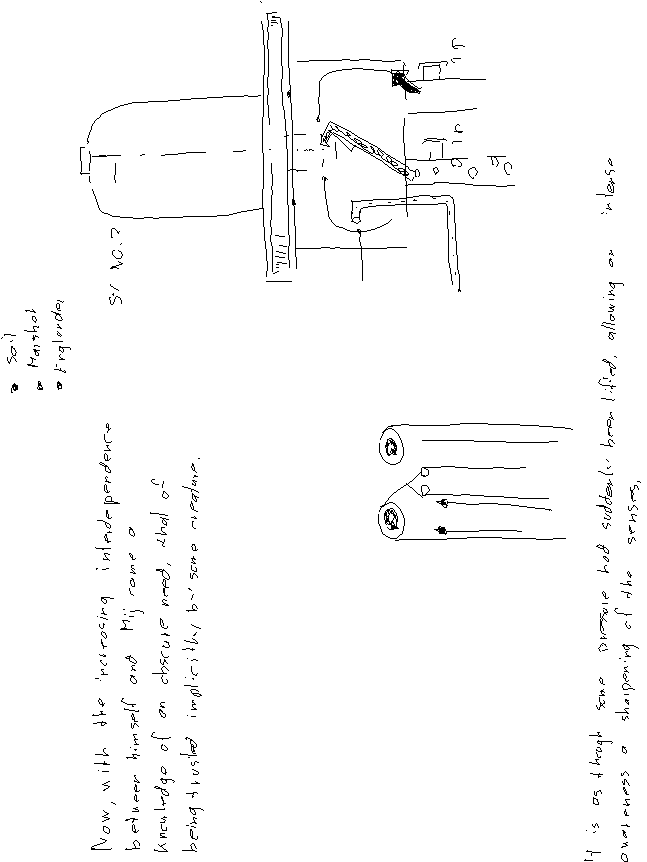 Soil
Marshal
Englander
SY NO. 7
Now, with the increasing interdependence
between himself and Mij came a
knowledge of an obscure need, that of
being trusted implicitly by some creature.
It is as though some pressure had suddenly been lifted, allowing an intense
awareness a sharpening of the senses.